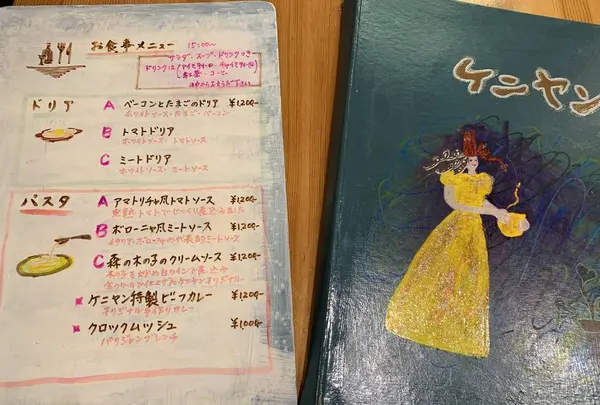 お食事メニュー
15:00〜
サラダ・スープ・ドリンクつき
ドリンクは
アイスティー
チャイミティー
紅茶・コーヒー
ドリア
A ベーコンとたまごのドリア ¥1200-
ホワイトソース・たまご・ベーコン
B トマトドリア
ホワイトソース・トマトソース
C ミートドリア
ホワイトソース・ミートソース
パスタ
A アマトリチャ風トマトソース ¥1200-
完熟トマトでじっくり煮込みました
B ボローニャ風ミートソース ¥1200-
イタリア・ボローニャの代表的ミートソース
C 森の木の子のクリームソース ¥1200-
木の子を炒め白ワインで煮込み
ケニヤン特製ビーフカレー ¥1200-
オリジナル手作りカレー
クロックムッシュ ¥1000-
パリジャンブレンチ
ケニヤン